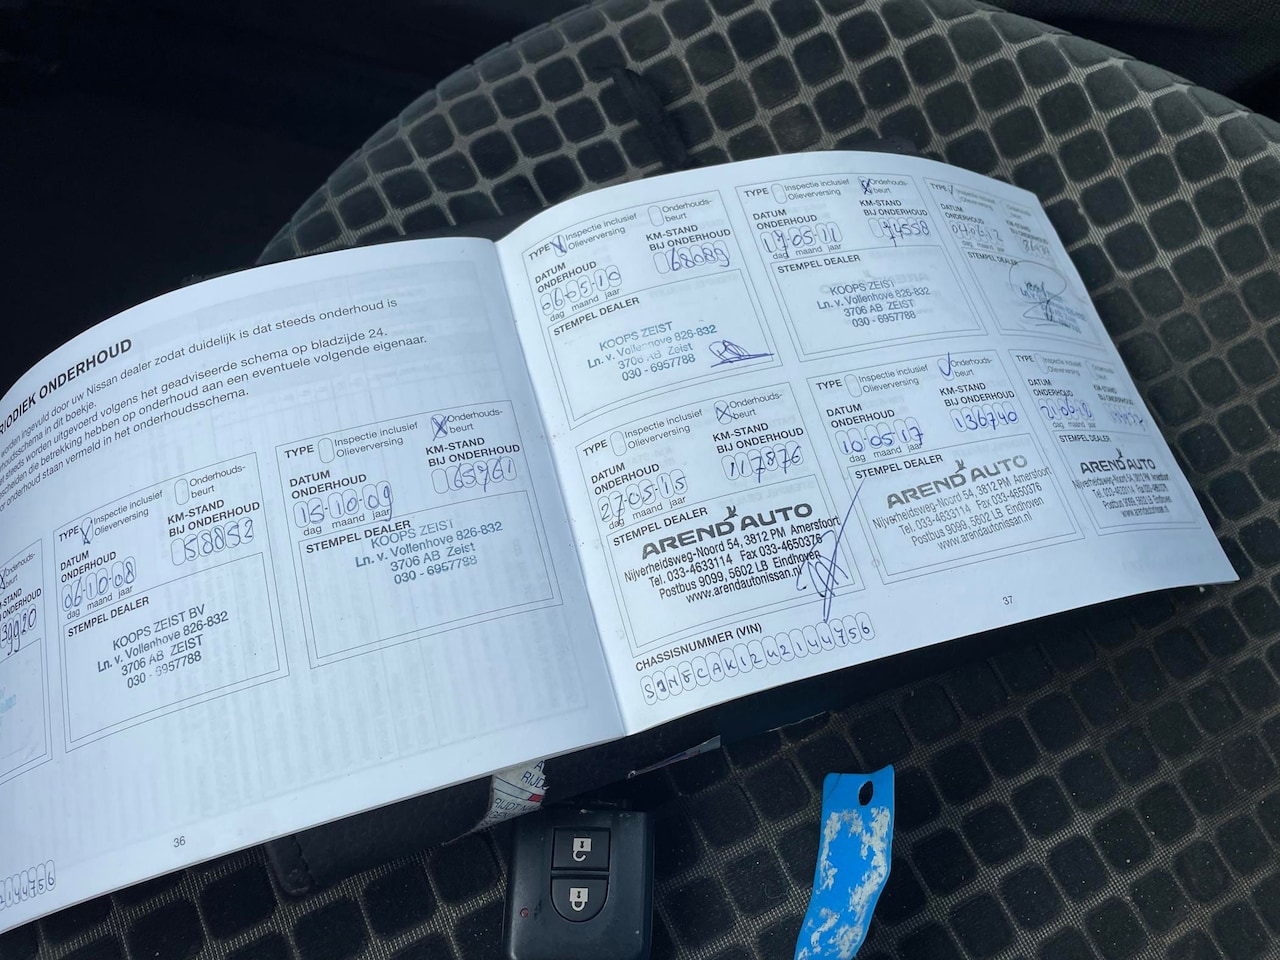 RIODIEK ONDERHOUD
worden ingevuld door uw Nissan dealer zodat duidelijk is dat steeds onderhoud is
in dit boekje.
steeds worden uitgevoerd volgens het geadviseerde schema op bladzijde 24.
die betrekking hebben op onderhoud aan een eventuele volgende eigenaar.
onderhoud staan vermeld in het onderhoudsschema.
39920
TYPE Inspectie inclusief Olieverversing Onderhouds-beurt
DATUM ONDERHOUD KM-STAND BIJ ONDERHOUD
06-10-08 58852
dag maand jaar
STEMPEL DEALER
KOOPS ZEIST BV
Ln. v. Vollenhove 826-832
3706 AB ZEIST
030 - 6957788
TYPE Inspectie inclusief Olieverversing Onderhouds-beurt
DATUM ONDERHOUD KM-STAND BIJ ONDERHOUD
15-10-09 65961
dag maand jaar
STEMPEL DEALER
KOOPS ZEIST
Ln. v. Vollenhove 826-832
3706 AB Zeist
030 - 6957788
36
TYPE Inspectie inclusief Olieverversing Onderhouds-beurt
DATUM ONDERHOUD KM-STAND BIJ ONDERHOUD
06-05-10 68089
dag maand jaar
STEMPEL DEALER
KOOPS ZEIST
Ln. v. Vollenhove 826-832
3706 AB Zeist
030 - 6957788
TYPE Inspectie inclusief Olieverversing Onderhouds-beurt
DATUM ONDERHOUD KM-STAND BIJ ONDERHOUD
17-05-11 74558
dag maand jaar
STEMPEL DEALER
KOOPS ZEIST
Ln. v. Vollenhove 826-832
3706 AB Zeist
030 - 6957788
TYPE Inspectie inclusief Olieverversing
DATUM ONDERHOUD KM-STAND BIJ ONDERHOUD
dag maand jaar
STEMPEL DEALER
TYPE Inspectie inclusief Olieverversing Onderhouds-beurt
DATUM ONDERHOUD KM-STAND BIJ ONDERHOUD
27-05-15 117876
dag maand jaar
STEMPEL DEALER
AREND AUTO
Nijverheidsweg-Noord 54, 3812 PM Amersfoort
Tel. 033-4633114 Fax 033-4650376
Postbus 9099, 5602 LB Eindhoven
www.arendautonissan.nl
TYPE Inspectie inclusief Olieverversing Onderhouds-beurt
DATUM ONDERHOUD KM-STAND BIJ ONDERHOUD
10-05-17 136740
dag maand jaar
STEMPEL DEALER
AREND AUTO
Nijverheidsweg-Noord 54, 3812 PM Amersfoort
Tel. 033-4633114 Fax 033-4650376
Postbus 9099, 5602 LB Eindhoven
www.arendautonissan.nl
TYPE Inspectie inclusief Olieverversing
DATUM ONDERHOUD KM-STAND BIJ ONDERHOUD
dag maand jaar
STEMPEL DEALER
AREND AUTO
Nijverheidsweg-Noord 54, 3812 PM Amersfoort
Tel. 033-4633114 Fax 033-4650376
Postbus 9099, 5602 LB Eindhoven
www.arendautonissan.nl
CHASSISNUMMER (VIN)
SJNFCAK12U2144756
37